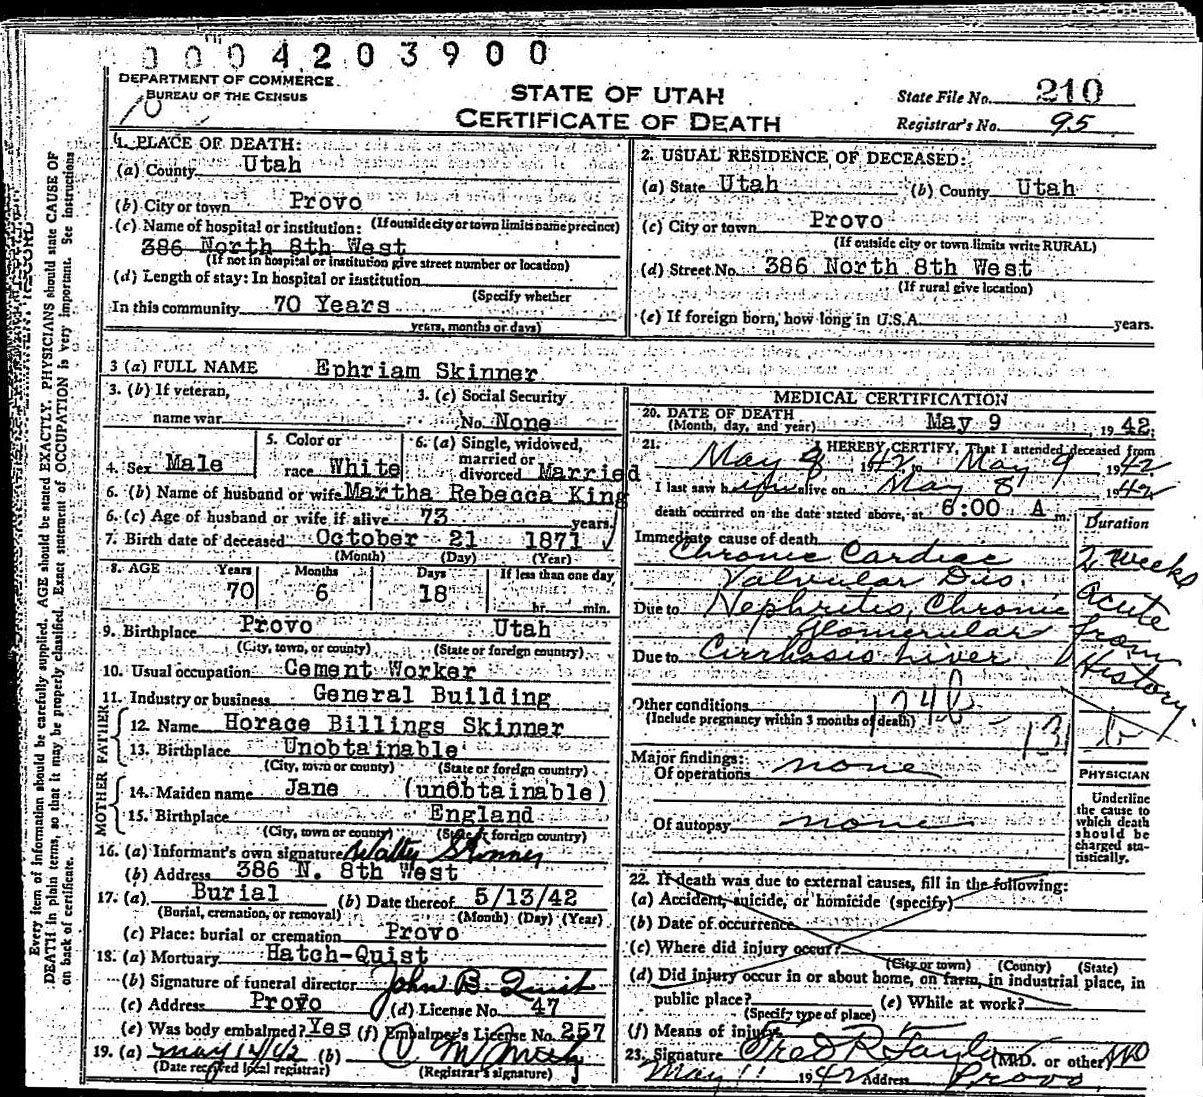 0004203900
DEPARTMENT OF COMMERCE
BUREAU OF THE CENSUS
10
STATE OF UTAH
CERTIFICATE OF DEATH
State File No. 210
Registrar's No. 95
Every item of information should be carefully supplied. AGE should be stated EXACTLY. PHYSICIANS should state CAUSE OF
DEATH in plain terms, so that it may be properly classified. Exact statement of OCCUPATION is very important. See instruction
on back of certificate.
1. PLACE OF DEATH:
(a) County Utah
(b) City or town Provo
(c) Name of hospital or institution: (If outside city or town limits name precinct)
386 North 8th West
(If not in hospital or institution give street number or location)
(d) Length of stay: In hospital or institution
(Specify whether
In this community 70 Years
years, months or days)
2. USUAL RESIDENCE OF DECEASED:
(a) State Utah (b) County Utah
(c) City or town Provo
(If outside city or town limits write RURAL)
(d) Street No. 386 North 8th West
(If rural give location)
(e) If foreign born, how long in U.S.A. years.
3 (a) FULL NAME Ephriam Skinner
3. (b) If veteran,
name war
3. (c) Social Security
No. None
4. Sex Male
5. Color or
race White
6. (a) Single, widowed,
married or
divorced Married
6. (b) Name of husband or wife Martha Rebecca King
6. (c) Age of husband or wife if alive 73 years.
7. Birth date of deceased October 21 1871
(Month) (Day) (Year)
8. AGE Years Months Days If less than one day
70 6 18 hr. min.
9. Birthplace Provo Utah
(City, town, or county) (State or foreign country)
10. Usual occupation Cement Worker
11. Industry or business General Building
FATHER
12. Name Horace Billings Skinner
13. Birthplace Unobtainable
(City, town or county) (State or foreign country)
MOTHER
14. Maiden name Jane (unobtainable)
15. Birthplace England
(City, town or county) (State or foreign country)
16. (a) Informant's own signature Skinner
(b) Address 386 N. 8th West
17. (a) Burial (b) Date thereof 5/13/42
(Burial, cremation, or removal) (Month) (Day) (Year)
(c) Place: burial or cremation Provo
18. (a) Mortuary Hatch-Quist
(b) Signature of funeral director John B. Quist
(c) Address Provo (d) License No. 47
(e) Was body embalmed? Yes (f) Embalmer's License No. 257
19. (a) May 12/42 (b)
(Date received local registrar) (Registrar's signature)
MEDICAL CERTIFICATION
20. DATE OF DEATH May 9, 1942
(Month, day, and year)
21. I HEREBY CERTIFY, That I attended deceased from
May 8 1942 to May 9 1942
I last saw him alive on May 8 1942
death occurred on the date stated above, at 6:00 A m.
Duration
Immediate cause of death
Chronic Cardiac
Valvular Dis.
2 weeks
acute
Due to Nephritis, Chronic
Glomerular
from
Due to Cirrhosis Liver
History.
Other conditions 124b
(Include pregnancy within 3 months of death)
131 b
Major findings:
Of operations none
Of autopsy none
PHYSICIAN
Underline
the cause to
which death
should be
charged sta-
tistically.
22. If death was due to external causes, fill in the following:
(a) Accident, suicide, or homicide (specify)
(b) Date of occurrence
(c) Where did injury occur?
(City or town) (County) (State)
(d) Did injury occur in or about home, on farm, in industrial place, in
public place? (e) While at work?
(Specify type of place)
(f) Means of injury
23. Signature Fred R Taylor (M.D. or other) MD
May 11 1942 Address Provo